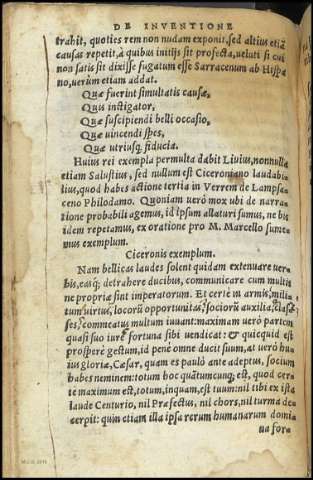 DE INVENTIONE
trahit, quoties rem non nudam exponit, sed altius etiã
causas repetit, à quibus initijs sit profecta, veluti si cui
non satis sit dixisse fugatum esse Sarracenum ab Hispa
no, uerùm etiam addat.
Quæ fuerint simultatis causæ,
Quis instigator,
Quæ suscipiendi belli occasio,
Quæ uincendi spes,
Quæ utriusq; fiducia.
Huius rei exempla permulta dabit Liuius, nonnulla
etiam Salustius, sed nullum est Ciceroniano laudabi
lius, quod habes actione tertia in Verrem de Lampsa
ceno Philodamo. Quoniam uerò mox ubi de narra
tione probabili agemus, id ipsum allaturi sumus, ne bis
idem repetamus, ex oratione pro M. Marcello sume
mus exemplum.
Ciceronis exemplum.
Nam bellicas laudes solent quidam extenuare uer
bis, easq; detrahere ducibus, communicare cum multis
ne propriæ sint imperatorum. Et certè in armis, mili
tum uirtus, locorũ opportunitas, sociorũ auxilia, classe
ses, commeatus multum iuuant: maximam uerò partem
quasi suo iure fortuna sibi uendicat: & quicquid est
prosperè gestum, id penè omne ducit suum, at uerò hu
ius gloriæ, Cæsar, quam es paulò ante adeptus, socium
habes neminem: totum hoc quãtumcunq; est, quod cer
te maximum est, totum, inquam, est tuum: nil tibi ex ista
laude Centurio, nil Præfectus, nil chors, nil turma de
cerpit: quin etiam illa ipsa rerum humanarum domi
na fors